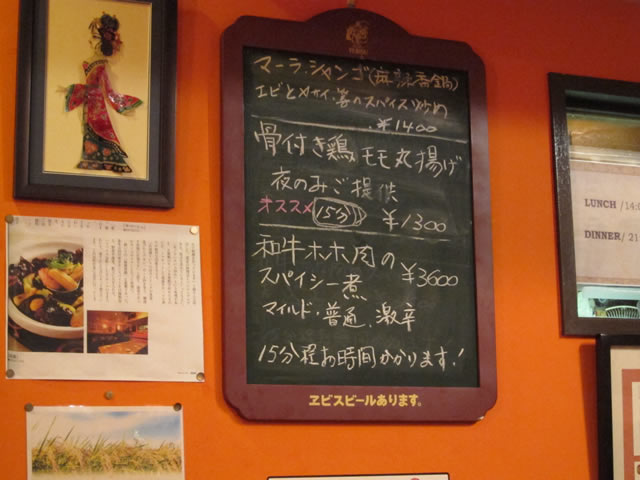 マーラ・シャンゴ(麻辣香鍋)
エビとヤサイ等のスパイス炒め
¥1400
骨付き鶏モモ丸揚げ
夜のみご提供
オススメ 15分 ¥1300
和牛ホホ肉の
スパイシー煮 ¥3600
マイルド・普通・激辛
15分程お時間かかります!
ヱビスビールあります。
LUNCH /14:0
DINNER/ 21